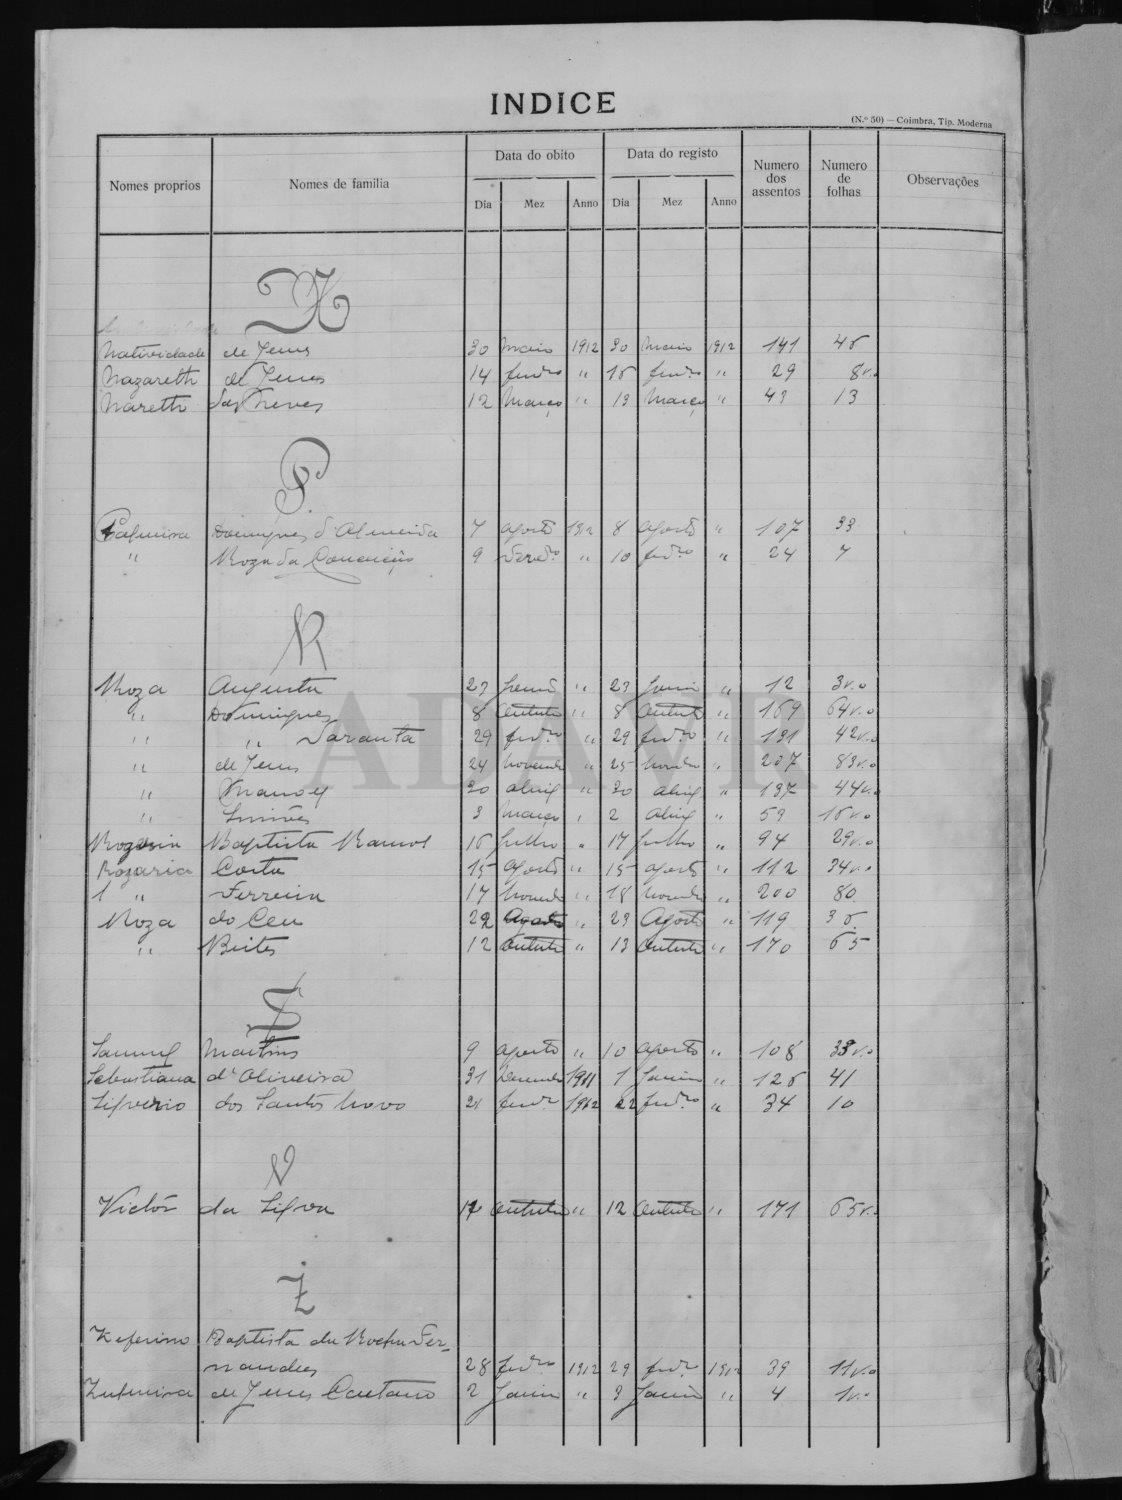 INDICE
(N.º 50) — Coimbra, Tip. Moderna
Nomes proprios Nomes de familia Data do obito Data do registo Numero dos assentos Numero de folhas Observações
Dia Mez Anno Dia Mez Anno
N
Natividade de Jesus 30 Maio 1912 30 Maio 1912 141 45
Nazareth de Jesus 14 fevro " 15 fevro " 29 8v.o
Nareth das Neves 12 Março " 13 Março " 43 13
P.
Palmira Domingues d'Almeida 7 Agosto 1912 8 Agosto " 107 33
" Roza da Conceição 9 Fevro " 10 fevro " 24 7
R
Roza Augusta 23 Janeiro " 23 Janeiro " 12 3v.o
" Domingues 8 Outubro " 8 Outubro " 169 64v.o
" " Saranta 29 fevro " 29 fevro " 131 42v.o
" de Jesus 24 Novembro " 25 Novembro " 207 83v.o
" Manoel 30 Abril " 30 Abril " 137 44v.o
" Simões 3 Março , 2 Abril " 59 18v.o
Baptista Ramos 16 Julho " 17 Julho " 94 29v.o
Rozaria Costa 15 Agosto " 15 Agosto " 112 34v.o
" Ferreira 17 Novembro " 18 Novembro " 200 80
Roza do Ceu 22 Agosto " 23 Agosto " 119 36
" Beites 12 Outubro " 13 Outubro " 170 65
S
Samuel Martins 9 Agosto " 10 Agosto " 108 33v.o
Sebastiana d'Oliveira 31 Dezembro 1911 1 Janeiro " 126 41
Silverio dos Santos Novo 21 fevro 1912 22 fevro " 34 10
V
Victor da Silva 12 Outubro " 12 Outubro " 171 65v.o
Z
Zeferino Baptista da Rocha Fer-
nandes 28 fevro 1912 29 fevro 1912 39 11v.o
Zulmira de Jesus Caetano 2 Janeiro " 3 Janeiro " 4 1v.o
ADAVR